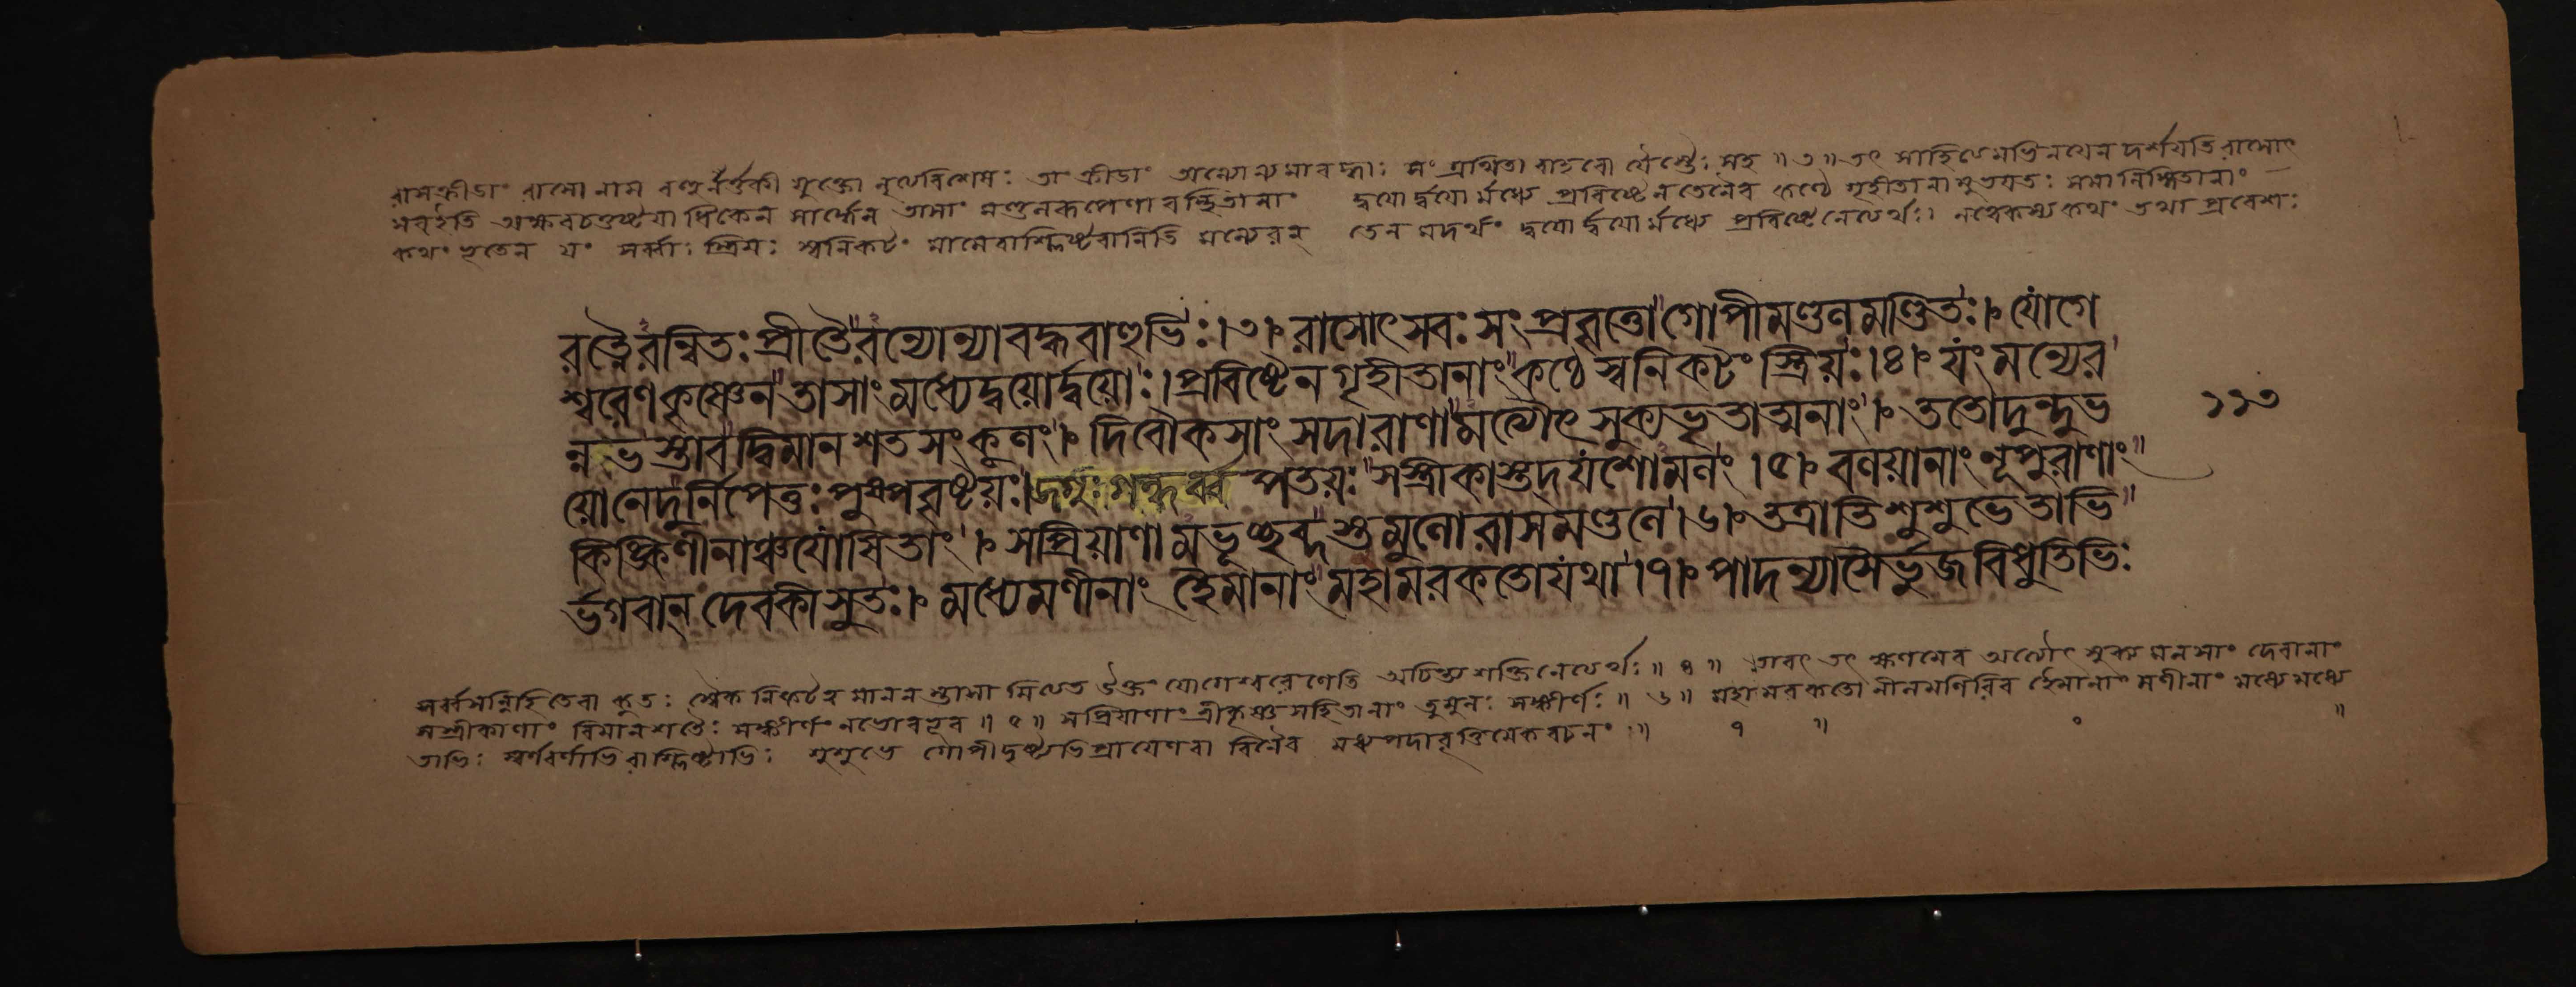 রাসক্রীডাং রাসো নাম বহুনর্ত্তকী যুক্তো নৃত্যবিশেষঃ তাং ক্রীডাং অন্যোন্যমাবদ্ধাঃ সংগ্রথিতা বাহবো যৈস্তৈঃ সহ ॥ ৩ ॥ তৎ সাহিত্যমভিনয়েন দর্শয়তি রাসোৎ
সবইতি তাসাং মণ্ডলরূপেণাবস্থিতানাং দ্বয়োর্দ্বয়োর্মধ্যে প্রবিষ্টেন তেনৈব কণ্ঠে গৃহীতানামুভয়তঃ সমালিঙ্গিতানাং
কথং ভূতেন যং সর্ব্বাঃ স্ত্রিয়ঃ স্বনিকটং মামেবাশ্লিষ্টবানিতি মন্যেরন্ তেন মদর্থং দ্বয়োর্দ্বয়োর্মধ্যে প্রবিষ্টেনেত্যর্থঃ। নন্বেকস্য কথং তথা প্রবেশঃ
রত্নৈরন্বিতঃ প্রীতৈরন্যোন্যাবদ্ধবাহুভিঃ।৩। রাসোৎসবঃ সংপ্রবৃত্তো গোপীমণ্ডলমণ্ডিতঃ। যোগে
শ্বরেণ কৃষ্ণেন তাসাং মধ্যে দ্বয়োর্দ্বয়োঃ। প্রবিষ্টেন গৃহীতানাং কণ্ঠে স্বনিকটং স্ত্রিয়ঃ।৪। যং মন্যের
ন্নভস্তাবদ্বিমানশতসংকুলং। দিবৌকসাং সদারাণামত্যৌৎসুক্যভৃতাত্মনাং। ততোদুন্দুভ
য়োনেদুর্নিপেতুঃ পুষ্পবৃষ্টয়ঃ। জগুঃ গন্ধর্ব্বপতয়ঃ সস্ত্রীকাস্তদ্যশোমলং।৫। বলয়ানাং নূপুরাণাং
কিঙ্কিণীনাঞ্চ যোষিতাং। সপ্রিয়াণামভূচ্ছব্দস্তুমুলো রাসমণ্ডলে।৬। তত্রাতিশুশুভে তাভি
র্ভগবান্ দেবকীসুতঃ। মধ্যে মণীনাং হৈমানাং মহামরকতো যথা।৭। পাদন্যাসৈর্ভুজবিধুতিভিঃ
১১৩
সর্ব্বসন্নিহিতেবা কুতঃ স্বৈকনিকটত্ব মানন স্তাসা মিত্যত উক্তং যোগেশ্বরেণেতি অচিন্ত্য শক্তিনেত্যর্থঃ ॥ ৪ ॥ তাবৎ তৎ ক্ষণমেব অত্যৌৎসুক্য মনসাং দেবানাং
সস্ত্রীকাণাং বিমানশতৈঃ সঙ্কীর্ণং নভোবভূব ॥ ৫ ॥ সপ্রিয়াণাং শ্রীকৃষ্ণসহিতানাং তুমুলঃ সঙ্কীর্ণঃ ॥ ৬ ॥ মহামরকতো নীলমণিরিব হৈমানাং মণীনাং মধ্যে মধ্যে
তাভিঃ স্বর্ণবর্ণাভিরাশ্লিষ্টাভিঃ শুশুভে গোপীদৃষ্ট্যভিপ্রায়েণবা বিনৈব মধ্যপদাবৃত্তিমেকবচনং ॥ ৭ ॥